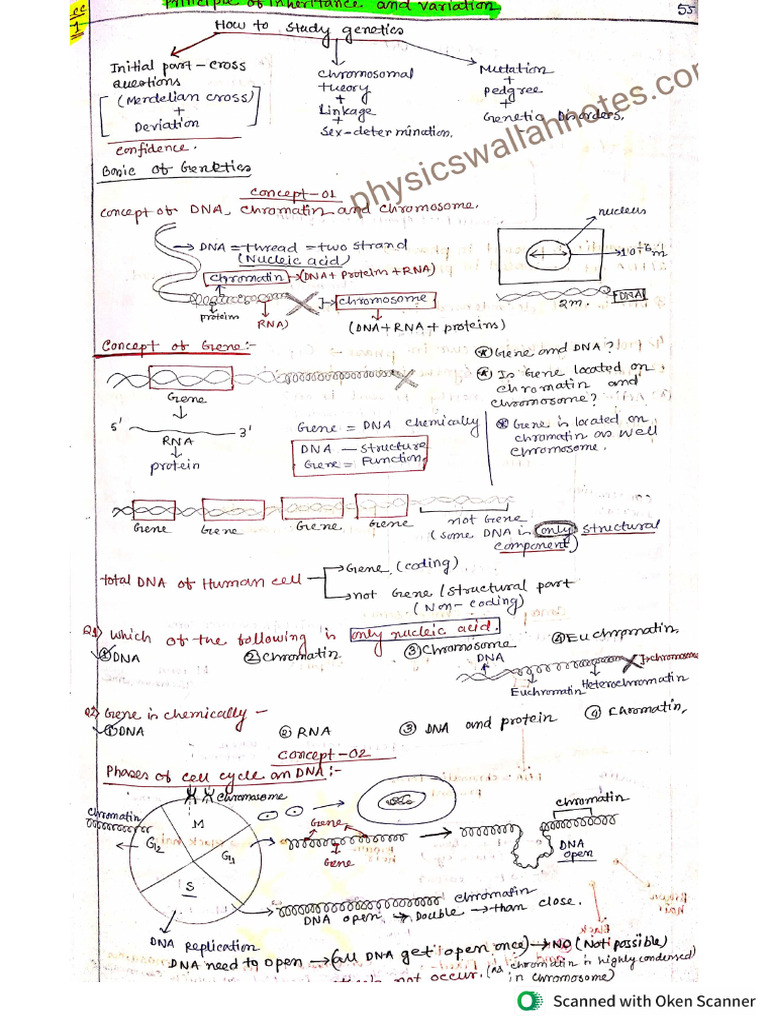 Lec 1
Principle of inheritance and variation
55
How to study genetics
Initial part - cross questions
(Mendelian cross)
+
Deviation
confidence.
chromosomal theory
+
Linkage
+
Sex-determination.
Mutation
+
Pedgree
+
Genetic Disorders.
physicswallahnotes.com
Basic of Genetics
Concept-01
concept of DNA, chromatin and chromosome.
→ DNA = thread = two strand
(Nucleic acid)
chromatin → (DNA + Protein + RNA)
protein
RNA)
chromosome
(DNA + RNA + proteins)
nucleus
→10⁻⁶m
2m.
DNA
Concept of Gene:-
Gene
5'
3'
RNA
protein
Gene = DNA chemically
DNA — Structure
Gene = Function
* Gene and DNA?
* Is Gene located on chromatin and chromosome?
* Gene is located on chromatin as well chromosome.
Gene
Gene
Gene
Gene
not Gene
(some DNA is only structural component)
total DNA of Human cell
→ Gene, (coding)
→ not Gene / Structural part
(Non-coding)
Q1) Which of the following is only nucleic acid.
① DNA
② Chromatin
③ Chromosome
④ Euchromatin.
DNA
Euchromatin
Heterochromatin
chromosome
Q2) Gene is chemically —
① DNA
② RNA
③ DNA and protein
④ Chromatin,
Concept-02
Phases of cell cycle on DNA:-
chromosome
chromatin
M
G2
G1
S
Gene
Gene
chromatin
DNA open
chromatin
DNA open → Double → than close.
DNA Replication
DNA need to open → (all DNA get open once) → NO (Not possible)
not occur. (as chromatin is highly condensed in chromosome)
Scanned with Oken Scanner